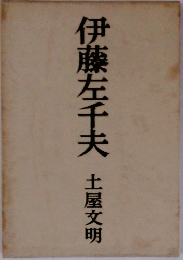 伊藤左千夫
土屋文明